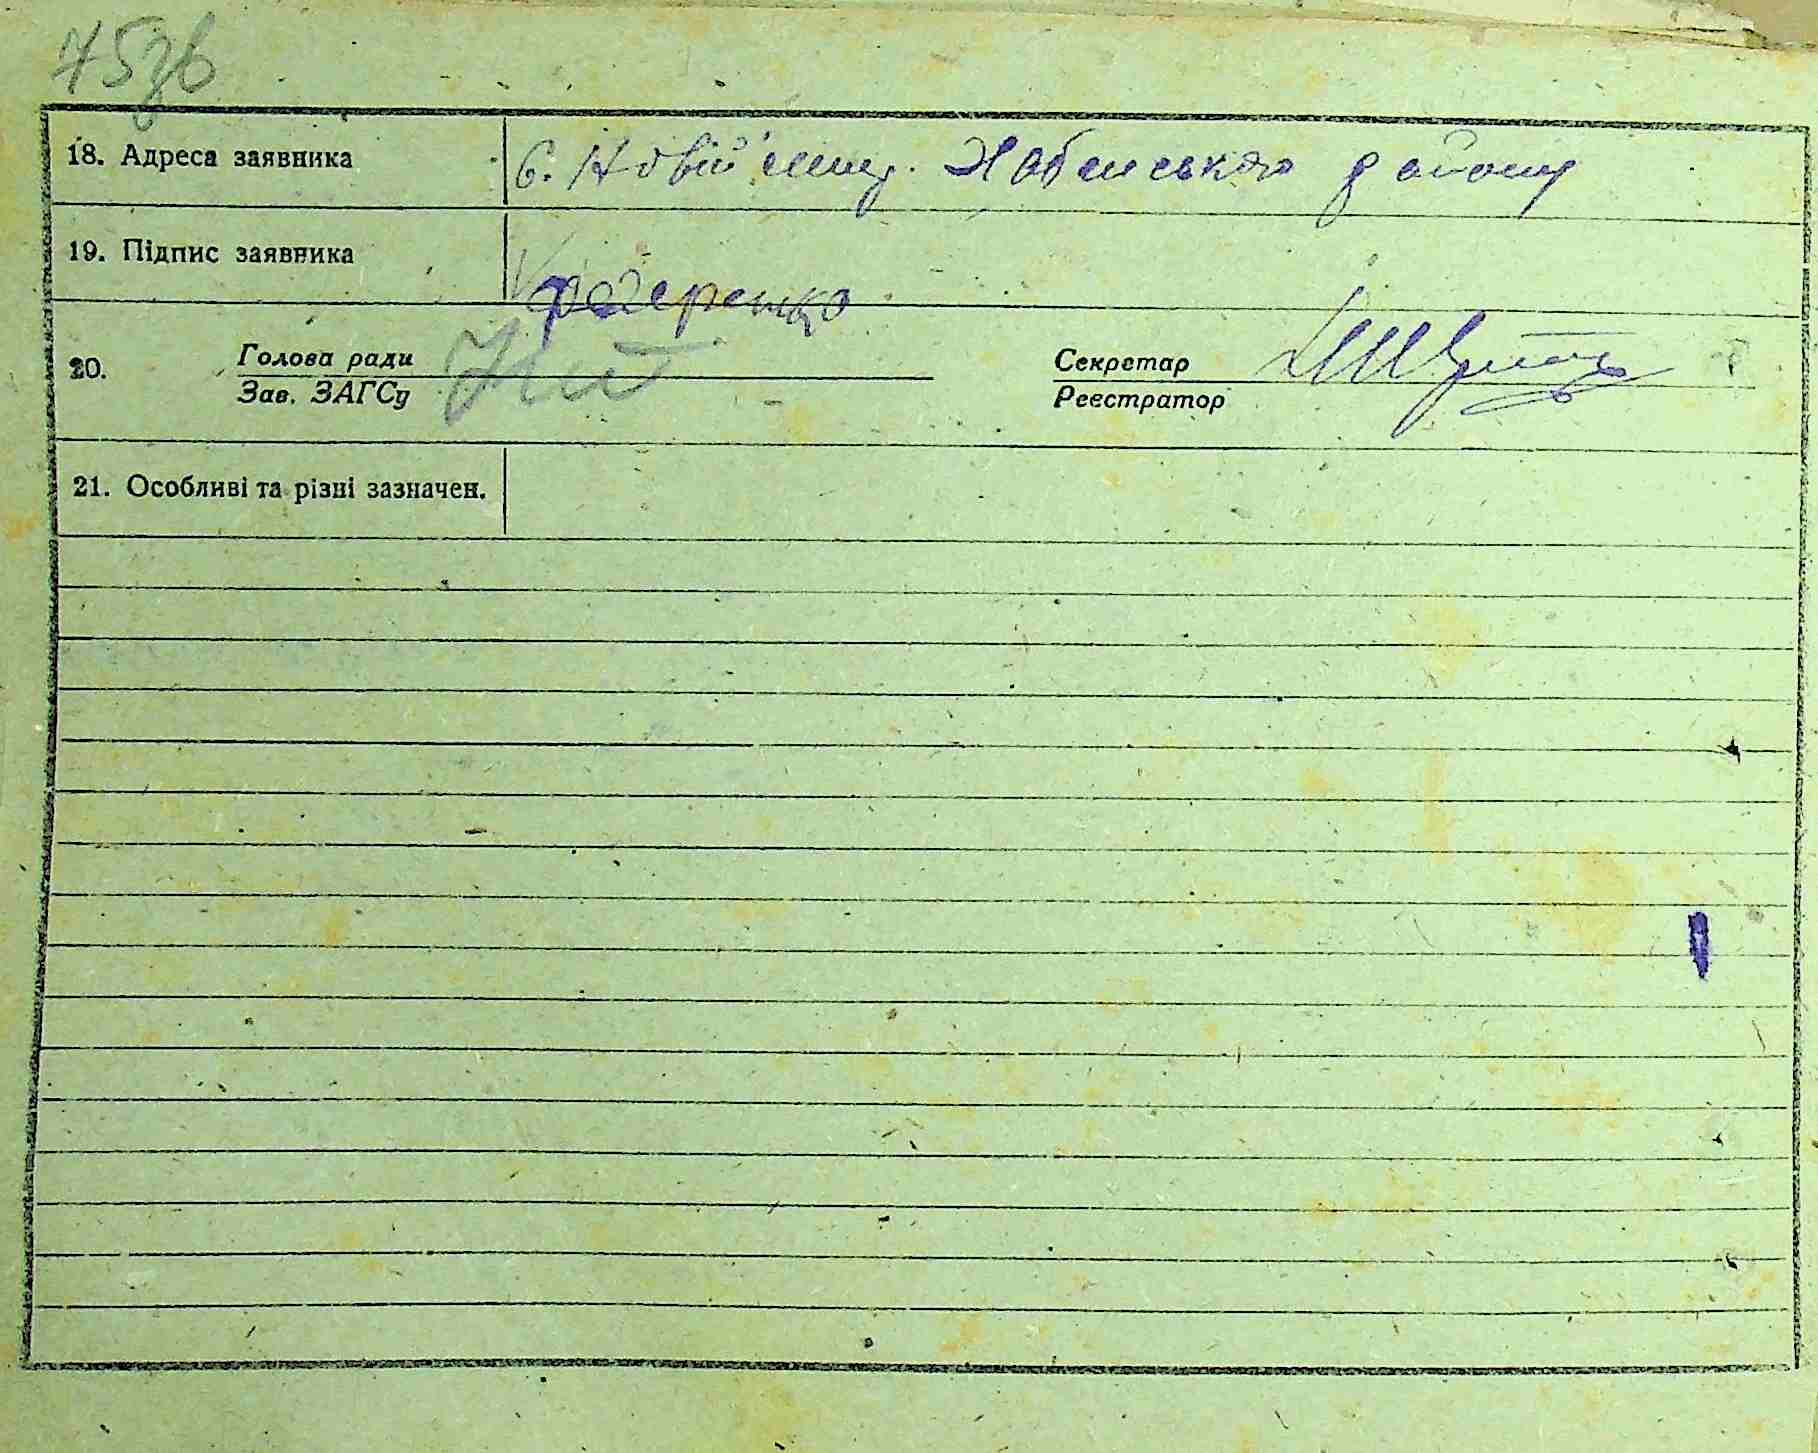 75зв
18. Адреса заявника с. Новій мир. Хабенського району
19. Підпис заявника Федеренко
20. Голова ради Секретар
Зав. ЗАГСу Реєстратор
21. Особливі та різні зазначен.